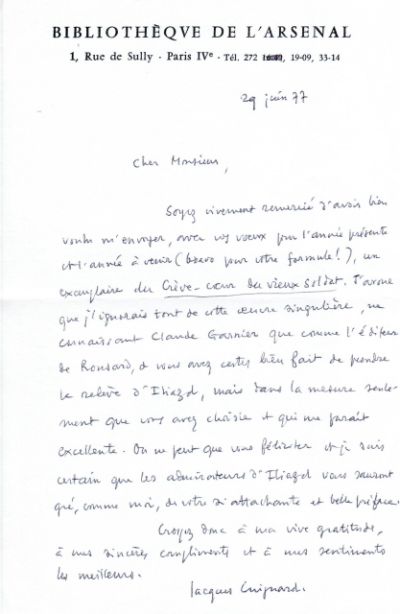 BIBLIOTHÈQVE DE L'ARSENAL
1, Rue de Sully · Paris IVe · Tél. 272 19-09, 33-14
29 juin 77
Cher Monsieur,
Soyez vivement remercié d'avoir bien
voulu m'envoyer, avec vos vœux pour l'année présente
et l'année à venir (bravo pour votre formule!), un
exemplaire du Crève-cœur du vieux soldat. J'avoue
que j'ignorais tout de cette œuvre singulière, ne
connaissant Claude Garnier que comme l'éditeur
de Ronsard, & vous avez certes bien fait de prendre
la relève d'Iliazd, mais dans la mesure seule-
ment que vous avez choisie et qui me paraît
excellente. On ne peut que vous féliciter et je suis
certain que les admirateurs d'Iliazd vous sauront
gré, comme moi, de votre si attachante et belle préface.
Croyez donc à ma vive gratitude,
à mes sincères compliments et à mes sentiments
les meilleurs.
Jacques Guignard.